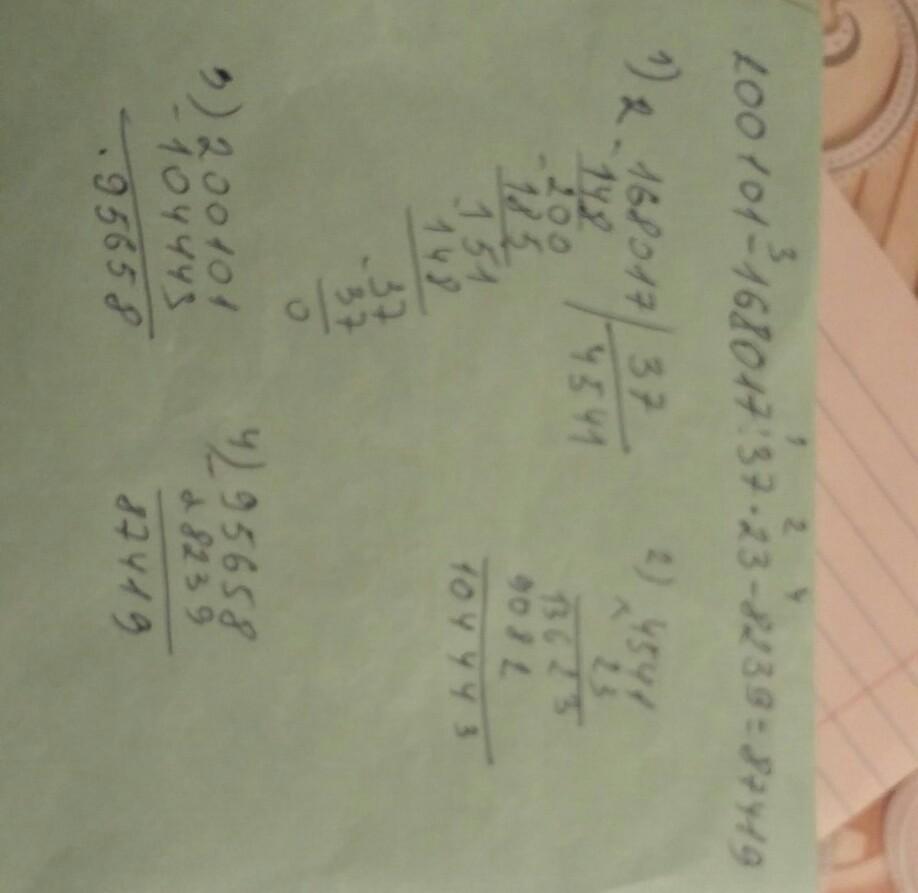 3 1 2 4
200101-168017:37·23-8239=87419
1) 2 -168017 | 37
148 4541
-200
185
-151
148
-37
37
0
2) 4541
× 23
13623
9082
104443
3) 200101
-104443
.95658
4) -95658
8239
87419